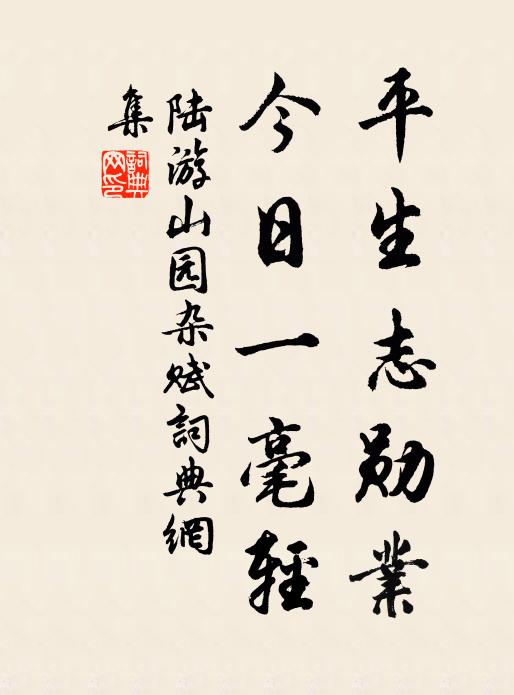 平生志勋業
今日一毫輕
陆游山园杂赋詞典網
集
詞典網印